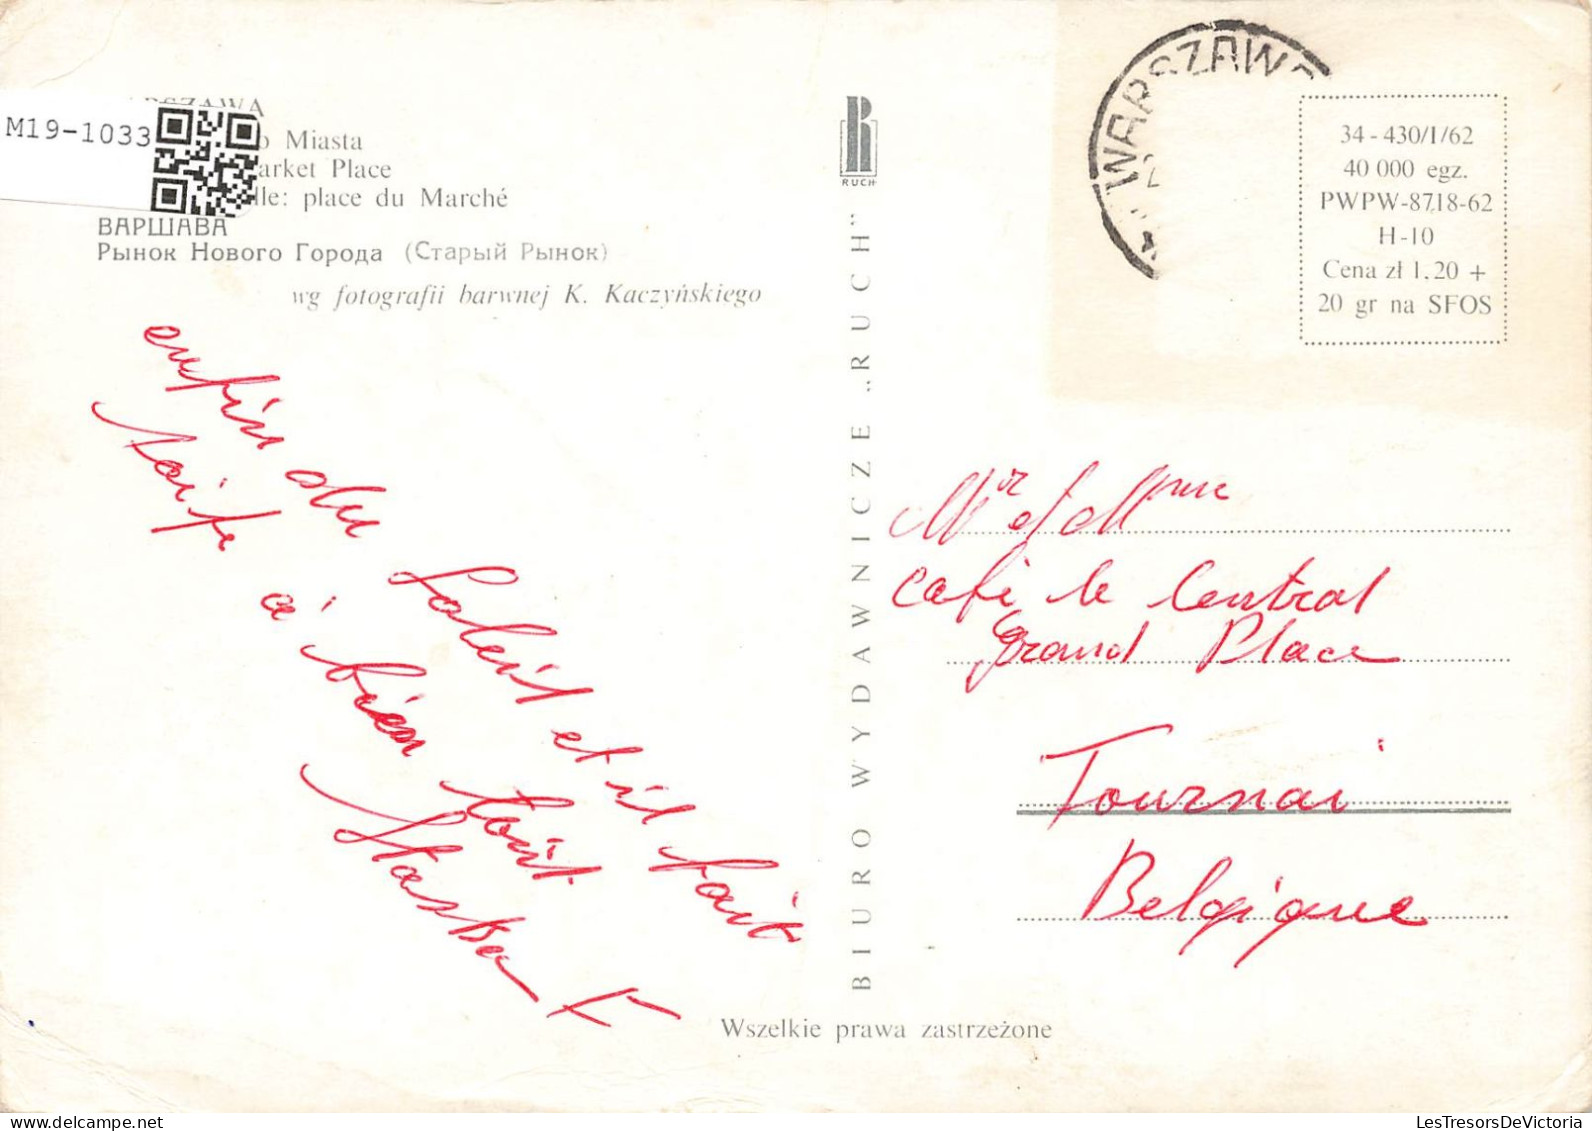 M19-1033
WARSZAWA
Miasta
arket Place
lle: place du Marché
ВАРШАВА
Рынок Нового Города (Старый Рынок)
wg fotografii barwnej K. Kaczyńskiego
enfin du Soleit et il fait
à bien toit
Staska
RUCH
BIURO WYDAWNICZE „RUCH”
WARSZAW
34-430/I/62
40 000 egz.
PWPW-8718-62
H-10
Cena zł 1.20 +
20 gr na SFOS
Mr et Mme
Café le Central
Grand Place
Tournai
Belgique
Wszelkie prawa zastrzeżone
LesTresorsDeVictoria